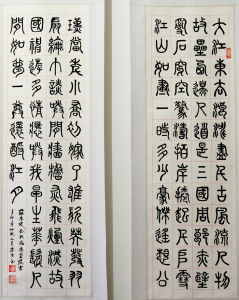 大江東去浪淘盡千古風流人物
故壘西邊人道是三國周郎赤壁
亂石穿空驚濤拍岸捲起千堆雪
江山如畫一時多少豪傑遙想公
瑾當年小喬初嫁了雄姿英發羽
扇綸巾談笑間檣櫓灰飛煙滅故
國神遊多情應笑我早生華髮人
間如夢一尊還酹江月